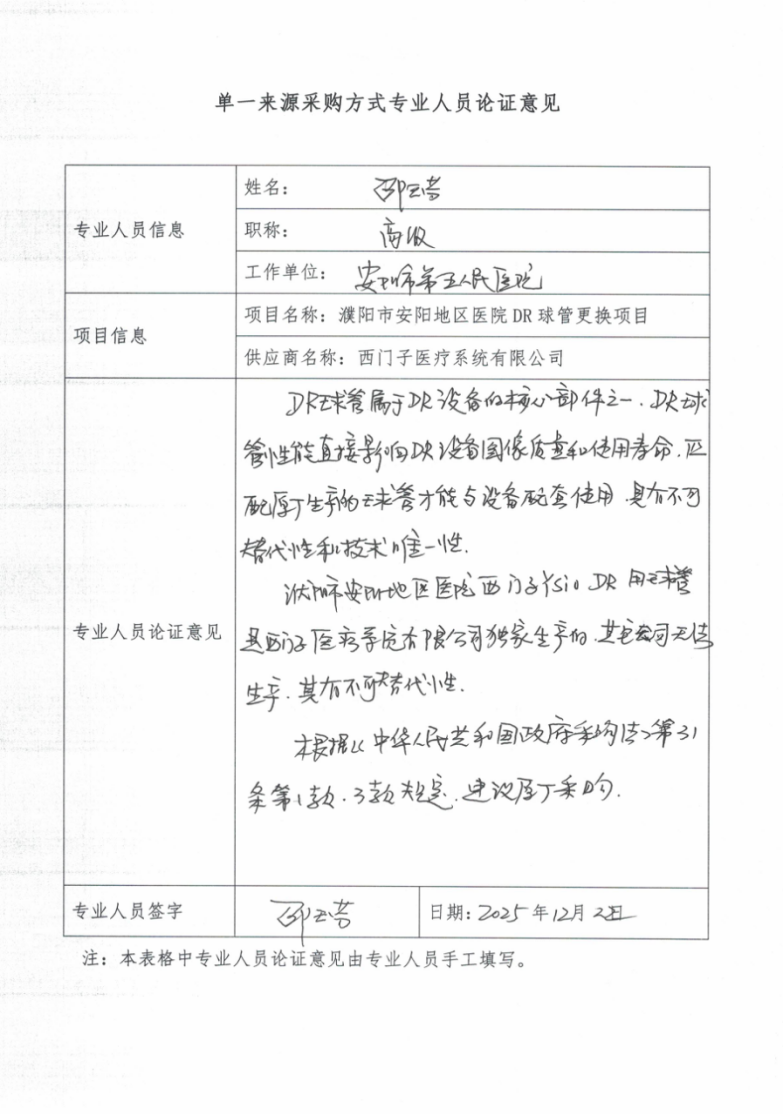 单一来源采购方式专业人员论证意见
专业人员信息
姓名：邵玉芳
职称：高级
工作单位：安阳市第五人民医院
项目信息
项目名称：濮阳市安阳地区医院 DR 球管更换项目
供应商名称：西门子医疗系统有限公司
专业人员论证意见
DR球管属于DR设备的核心部件之一，DR球
管性能直接影响DR设备图像质量和使用寿命，匹
配原厂生产的球管才能与设备配套使用，具有不可
替代性和技术唯一性．
濮阳市安阳地区医院西门子Ysio DR 用球管
是西门子医疗系统有限公司独家生产的，其它公司无法
生产，具有不可替代性．
本根据《中华人民共和国政府采购法》第31
条第1款、3款规定，建议原厂采购．
专业人员签字
日期：2025年12月2日
注：本表格中专业人员论证意见由专业人员手工填写。